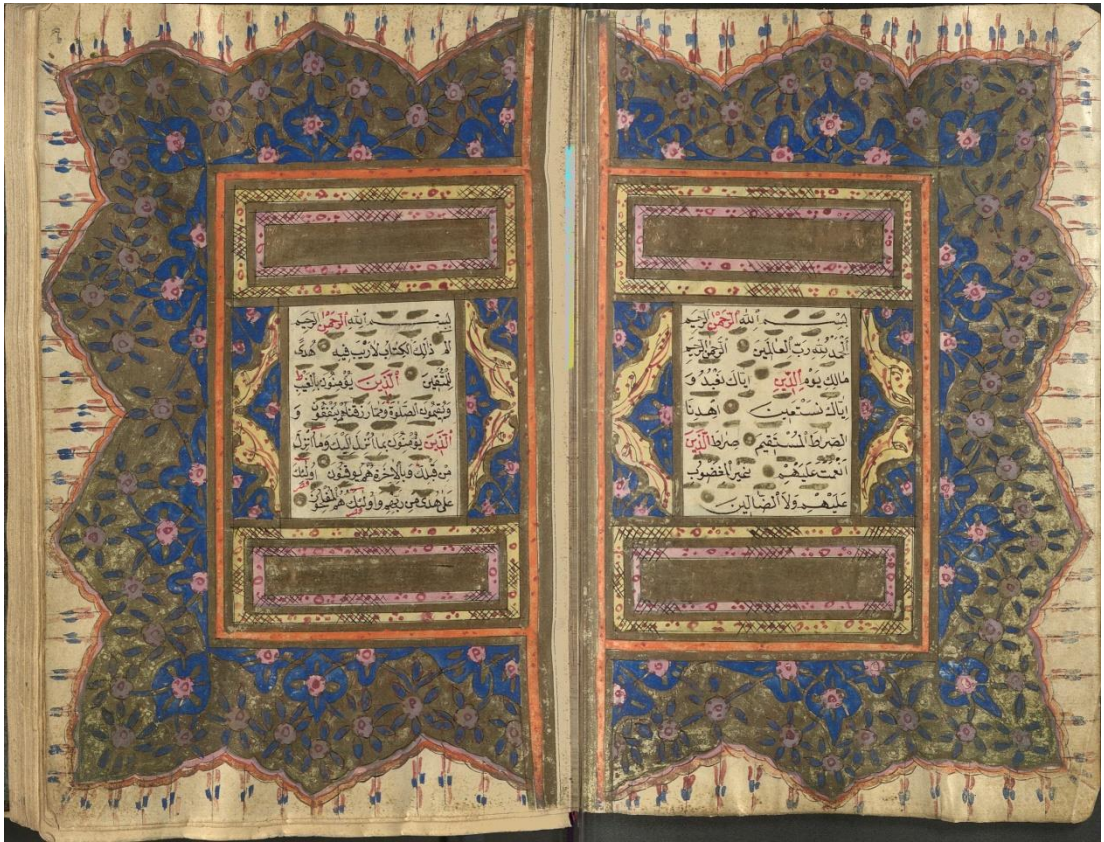 بِسْمِ اللهِ الرَّحْمٰنِ الرَّحِيمِ
اَلْحَمْدُ لِلّٰهِ رَبِّ الْعَالَمِينَ الرَّحْمٰنِ الرَّحِيمِ
مَالِكِ يَوْمِ الدِّينِ اِيَّاكَ نَعْبُدُ وَ
اِيَّاكَ نَسْتَعِينُ اِهْدِنَا
الصِّرَاطَ الْمُسْتَقِيمَ صِرَاطَ الَّذِينَ
اَنْعَمْتَ عَلَيْهِمْ غَيْرِ الْمَغْضُوبِ
عَلَيْهِمْ وَلَا الضَّالِّينَ
بِسْمِ اللهِ الرَّحْمٰنِ الرَّحِيمِ
الم ذٰلِكَ الْكِتَابُ لَا رَيْبَ فِيهِ هُدًى
لِلْمُتَّقِينَ اَلَّذِينَ يُؤْمِنُونَ بِالْغَيْبِ
وَيُقِيمُونَ الصَّلٰوةَ وَمِمَّا رَزَقْنَاهُمْ يُنْفِقُونَ وَ
الَّذِينَ يُؤْمِنُونَ بِمَا اُنْزِلَ اِلَيْكَ وَمَا اُنْزِلَ
مِنْ قَبْلِكَ وَبِالْاٰخِرَةِ هُمْ يُوقِنُونَ اُولٰئِكَ
عَلٰى هُدًى مِنْ رَبِّهِمْ وَاُولٰئِكَ هُمُ الْمُفْلِحُونَ